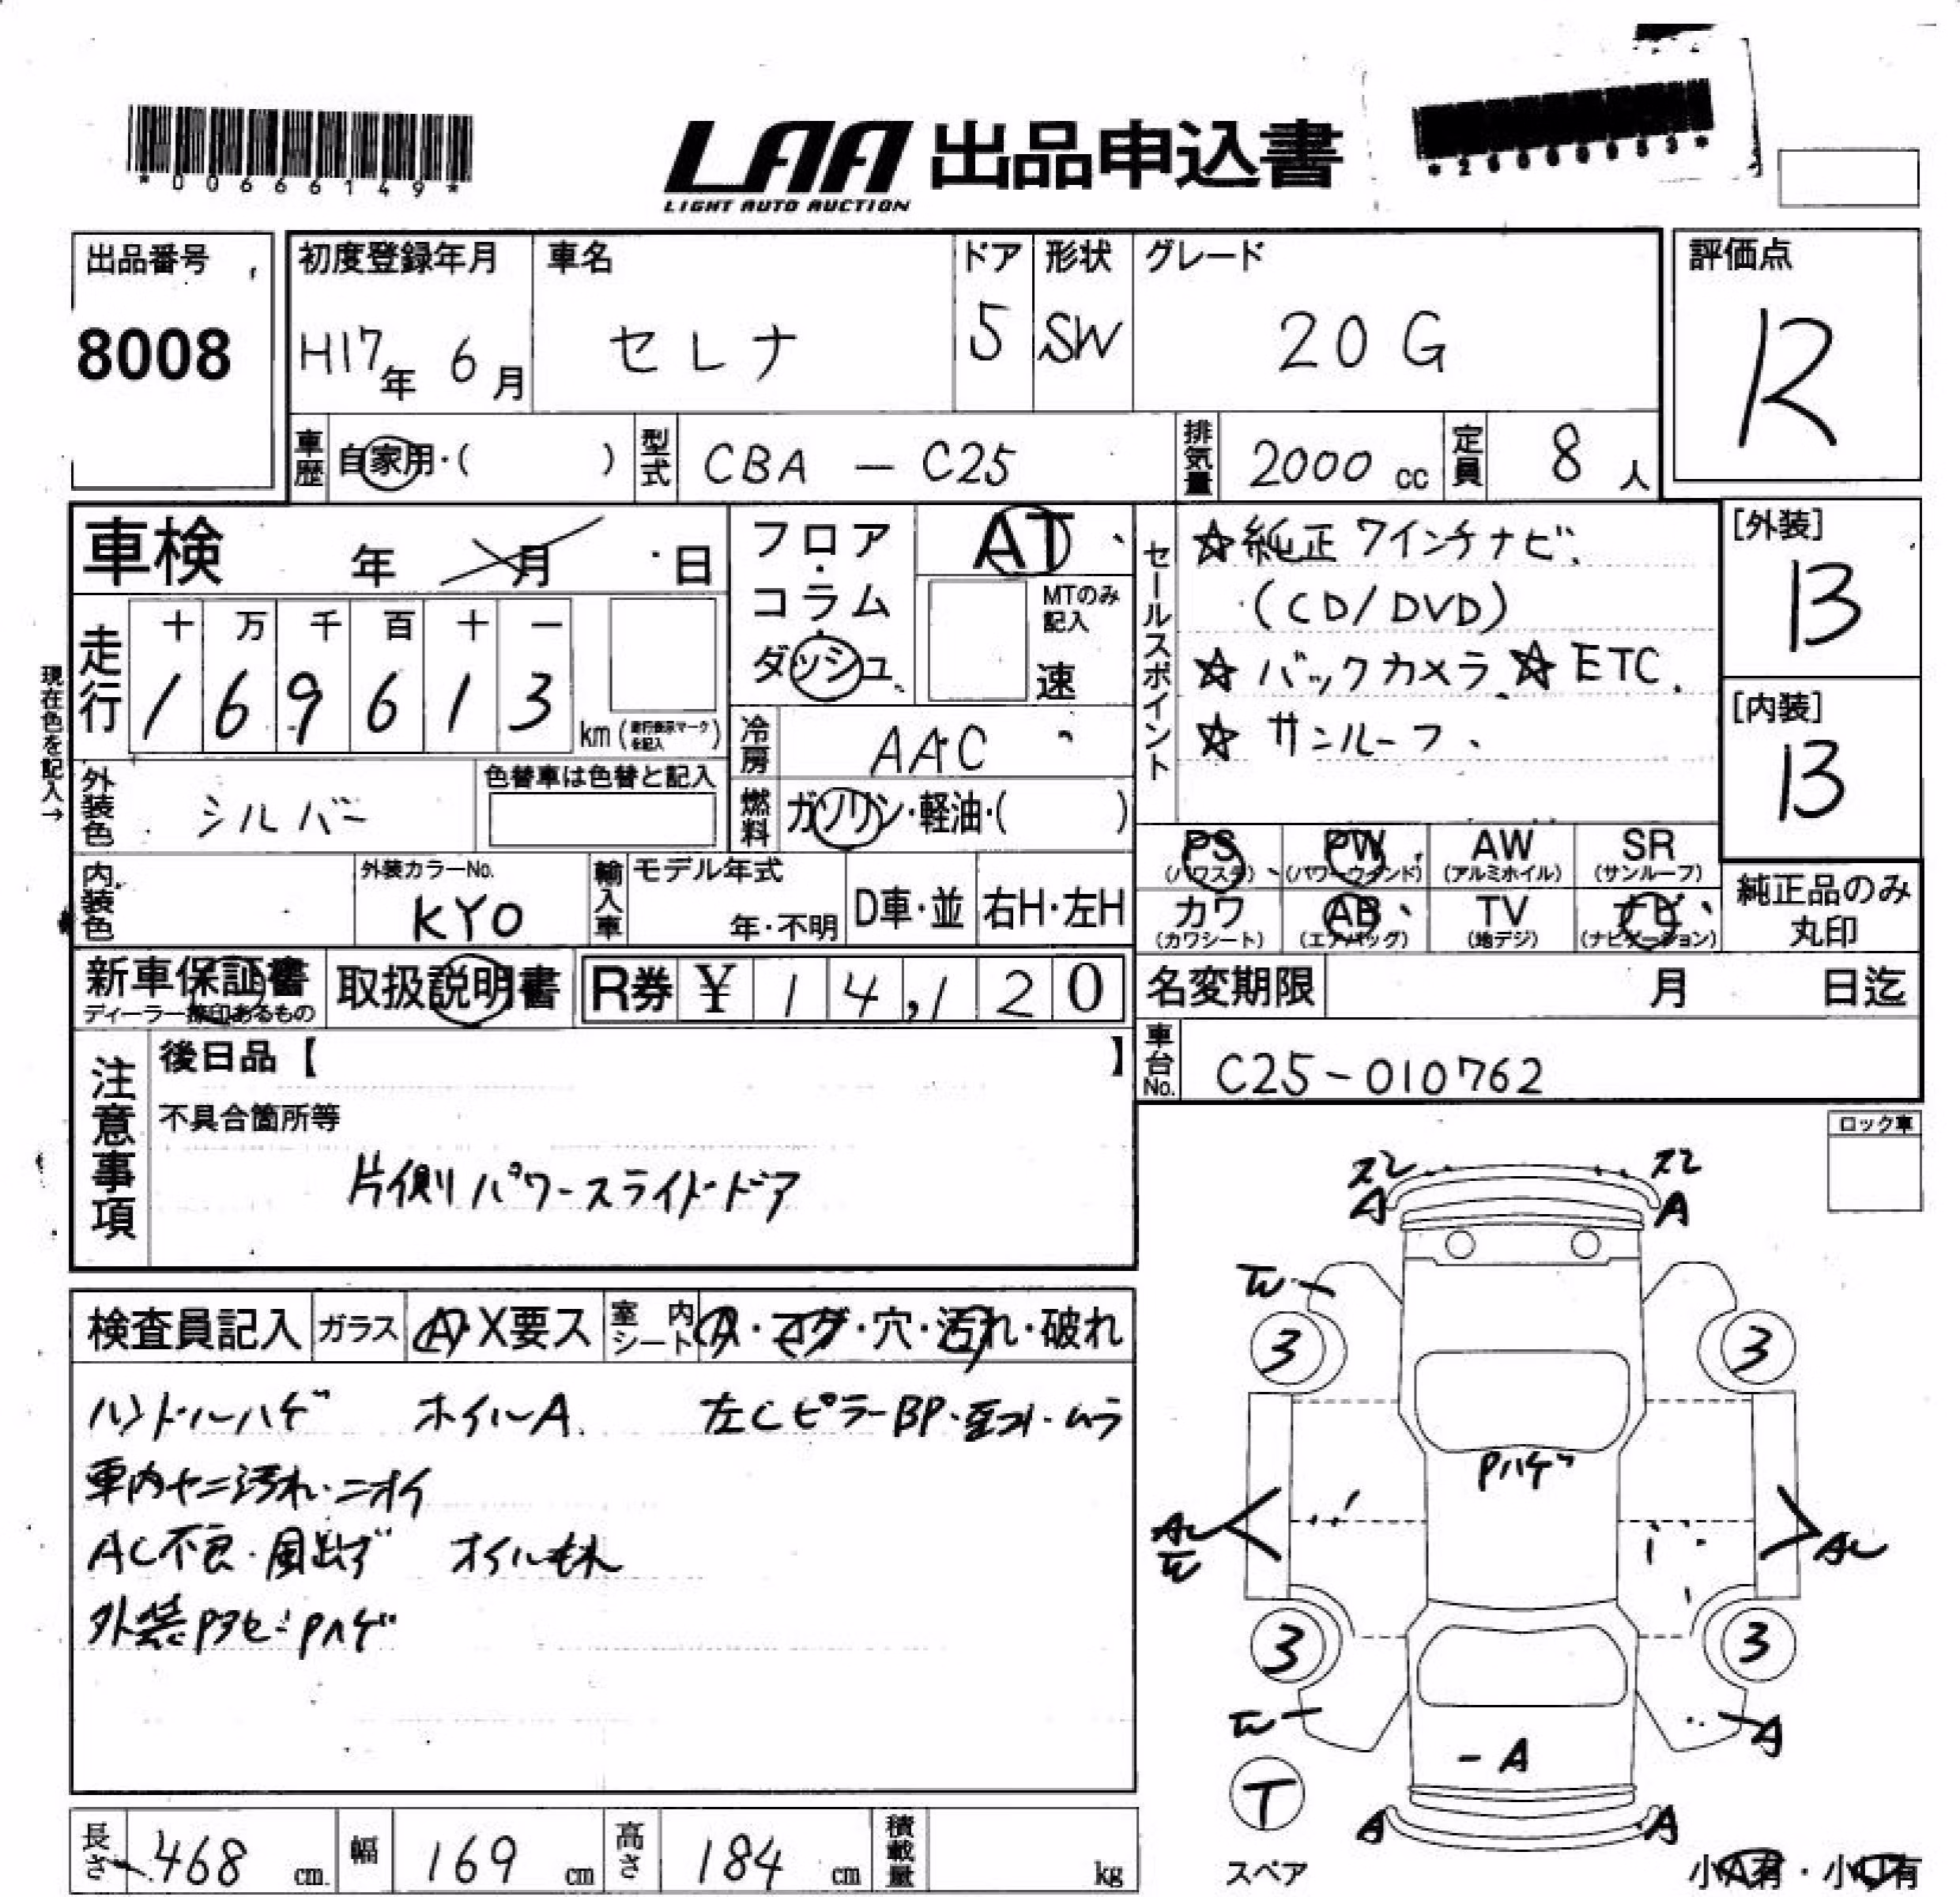 *00666149*
LAA 出品申込書
LIGHT AUTO AUCTION
出品番号
8008
初度登録年月
H17年 6月
車名
セレナ
ドア
5
形状
SW
グレード
20G
評価点
R
車歴 自家用・( )
型式 CBA - C25
排気量 2000 cc
定員 8 人
車検 年 月 日
フロア・コラム・ダッシュ
AT
MTのみ記入
速
セールスポイント
☆純正7インチナビ、
(CD/DVD)
☆バックカメラ、☆ETC.
☆サンルーフ、
[外装]
B
[内装]
B
現在色を記入→
走行
十 万 千 百 十 一
1 6 9 6 1 3 km
冷房 AAC
燃料 ガソリン・軽油・( )
外装色 シルバー
色替車は色替と記入
内装色
外装カラーNo.
KY0
輸入車
モデル年式
年・不明
D車・並
右H・左H
PS (パワステ)
PW (パワーウィンド)
AW (アルミホイル)
SR (サンルーフ)
カワ (カワシート)
AB (エアバッグ)
TV (地デジ)
ナビ (ナビゲーション)
純正品のみ
丸印
新車保証書
ディーラー捺印あるもの
取扱説明書
R券 ¥ 14,120
名変期限 月 日迄
車台No. C25-010762
注意事項
後日品【 】
不具合箇所等
片側パワースライドドア
ロック車
検査員記入
ガラス
A・X要ス
室内シート
A・コゲ・穴・汚れ・破れ
ハンドルハゲ ホイルA. 左Cピラー BP・ムラ
車内ヤニ汚れ・ニオイ
AC不良・風出ず オイルもれ
外装Pアセ・Pハゲ
A
A
3
3
Pハゲ
3
3
A
-A
T
A
A
スペア
小A有・小U有
長さ 468 cm.
幅 169 cm
高さ 184 cm
積載量 kg